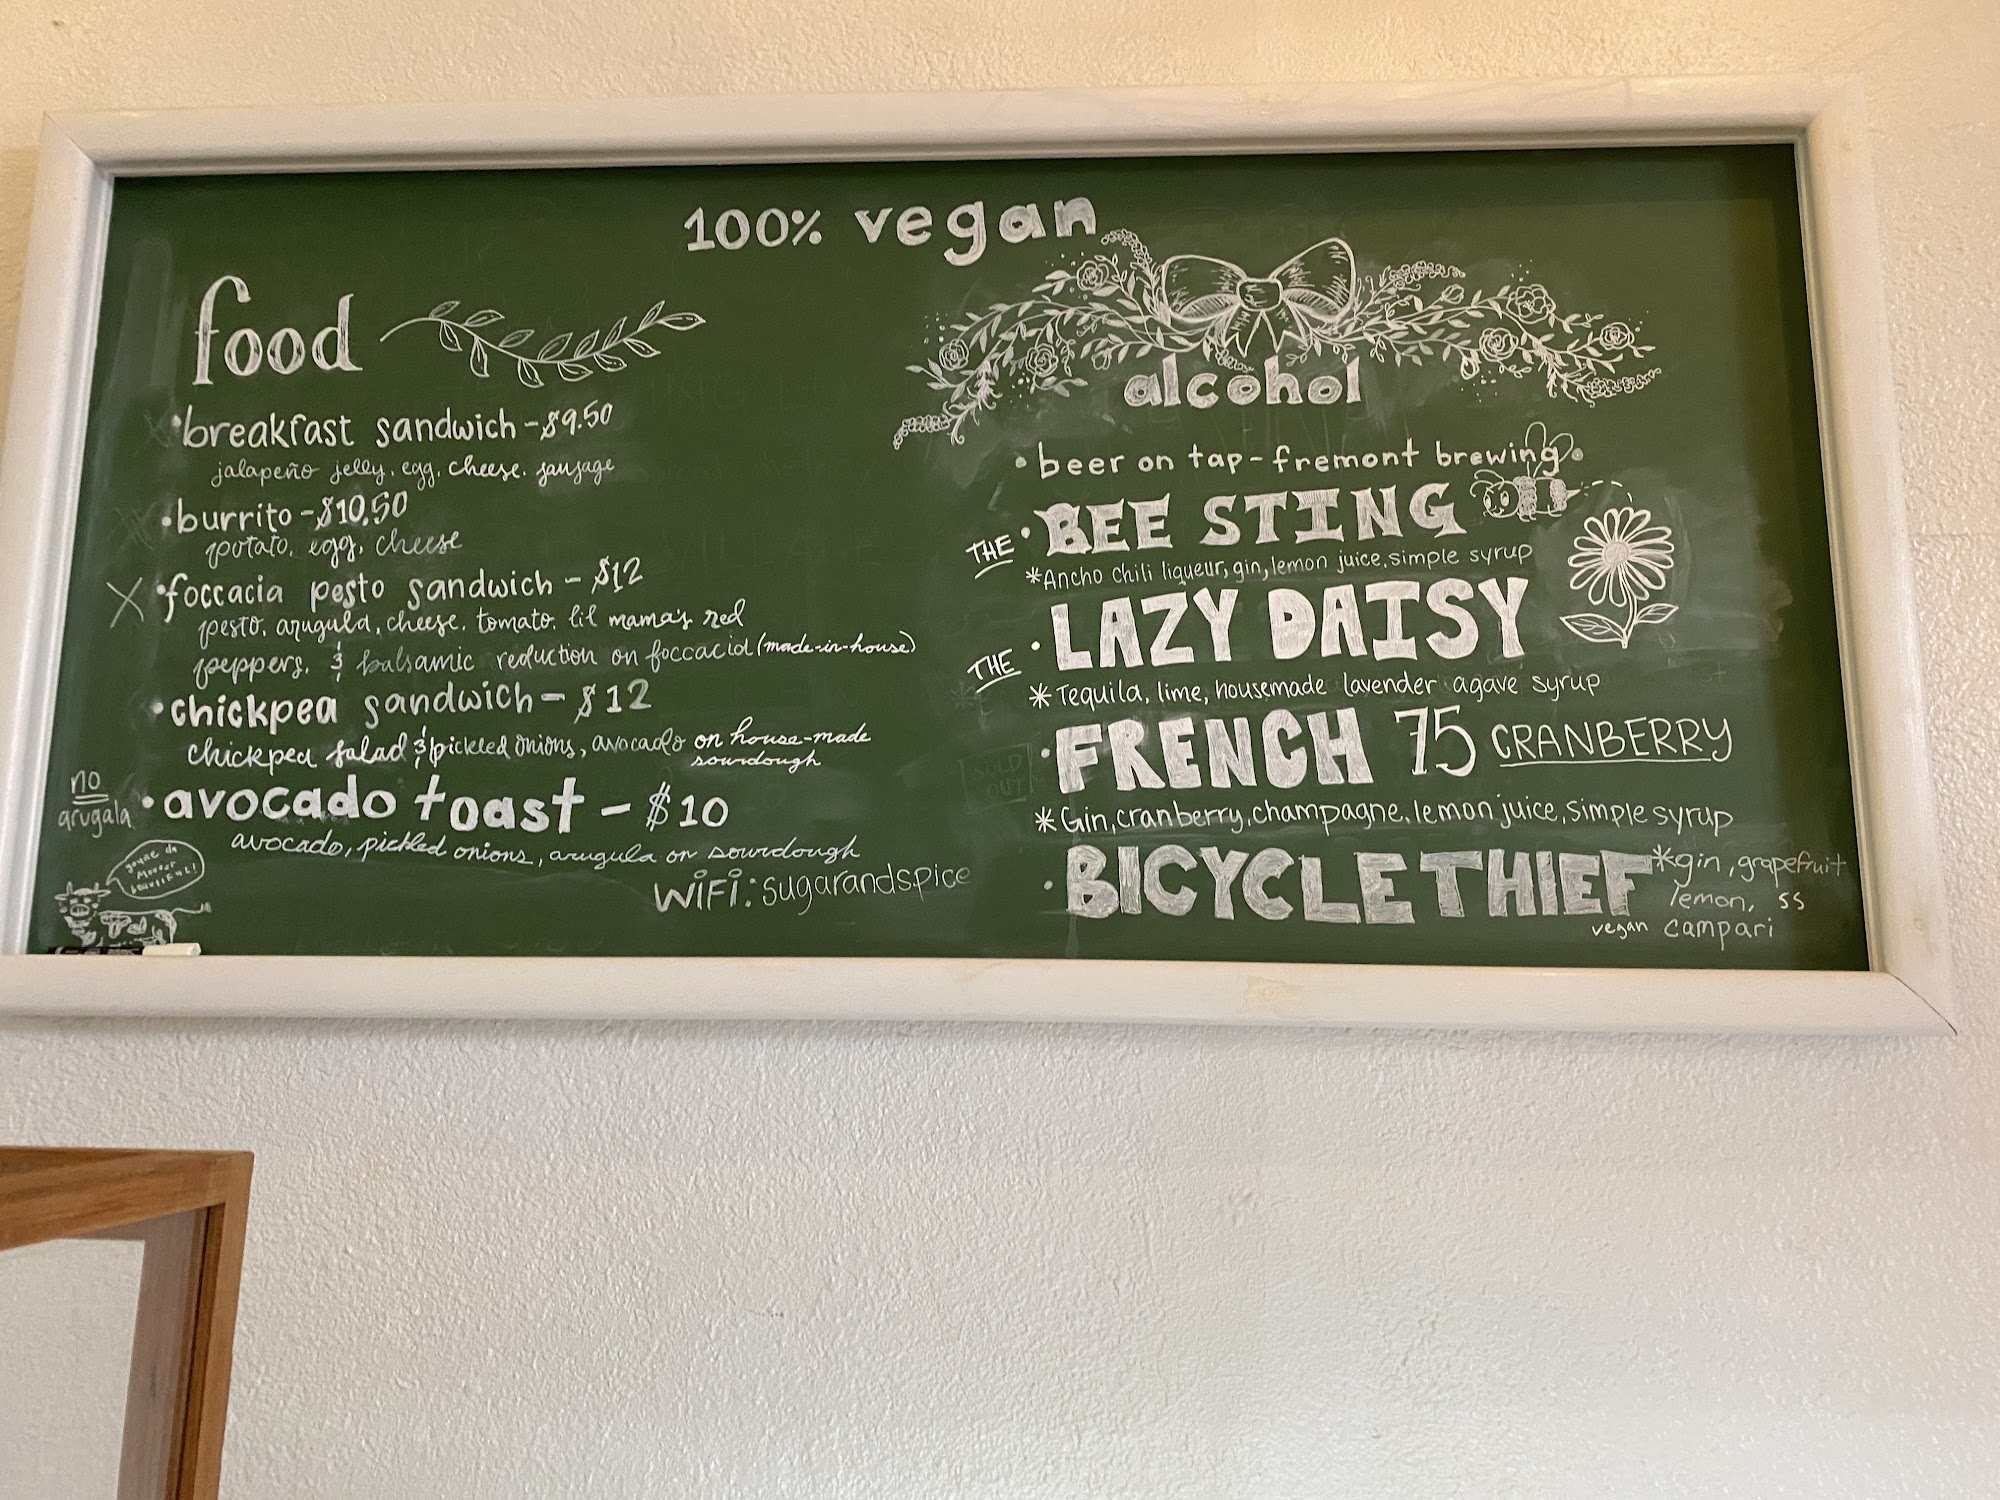 100% vegan
food
• breakfast sandwich - $9.50
jalapeño jelly, egg, cheese, sausage
• burrito - $10.50
potato, egg, cheese
X • foccacia pesto sandwich - $12
pesto, arugula, cheese, tomato, lil mama's red
peppers, & balsamic reduction on foccacia (made-in-house)
• chickpea sandwich - $12
chickpea salad & pickled onions, avocado on house-made
sourdough
no
arugala
• avocado toast - $10
avocado, pickled onions, arugula on sourdough
WiFi: sugarandspice
alcohol
• beer on tap - fremont brewing •
THE • BEE STING
*Ancho chili liqueur, gin, lemon juice, simple syrup
THE • LAZY DAISY
*Tequila, lime, housemade lavender agave syrup
SOLD
OUT
• FRENCH 75 CRANBERRY
*Gin, cranberry, champagne, lemon juice, simple syrup
• BICYCLE THIEF *gin, grapefruit
lemon, ss
vegan campari